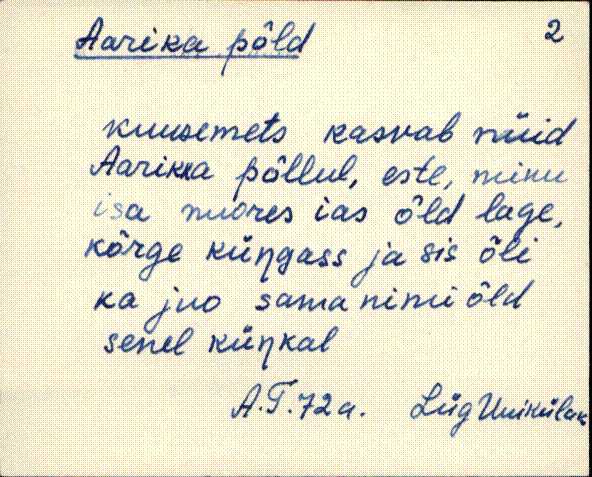 Aarika põld 2
kuusemets kasvab nüid
Aarikka põllul, este, minu
isa nuores ias õld lage,
kõrge küŋgass ja sis õli
ka juo sama nimi õld
senel küŋkal
A.T. 72a. Lüg Uuikülak